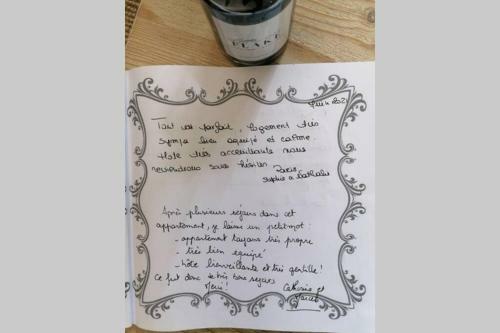 Tout est parfait, logement très
sympa bien équipé et calme.
Hote très accueillante nous
reviendrons sans hésiter.
Après plusieurs séjours dans cet
appartement, je laisse un petit mot :
- appartement toujours très propre
- très bien équipé
- hôte bienveillante et très gentille !
Ce fut donc de très bons séjours
Merci ! Catherine et